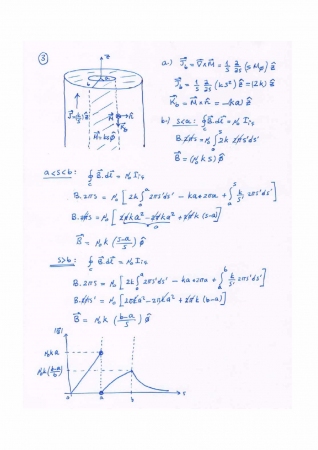 ③
z
a
b
J⃗ = (k/s) ẑ
M⃗ = ks φ̂
n̂
K⃗_b
a-) J⃗_b = ∇⃗ x M⃗ = 1/s ∂/∂s (s M_φ) ẑ
J⃗_b = 1/s ∂/∂s (k s²) ẑ = (2k) ẑ
K⃗_b = M⃗ x n̂ = -(ka) ẑ
b-) s<a: ∮_C B⃗.dl⃗ = μ₀ I_is
B.2πs = μ₀ ∫₀^s 2k 2πs'ds'
B⃗ = (μ₀ k s) φ̂
a<s<b: ∮_C B⃗.dl⃗ = μ₀ I_is
B.2πs = μ₀ [2k ∫₀^a 2πs'ds' - ka.2πa + ∫_a^s k/s' 2πs'ds']
B.2πs = μ₀ [2πka² - 2πka² + 2πk (s-a)]
B⃗ = μ₀ k (s-a / s) φ̂
s>b: ∮_C B⃗.dl⃗ = μ₀ I_is
B.2πs = μ₀ [2k ∫₀^a 2πs'ds' - ka.2πa + ∫_a^b k/s' 2πs'ds']
B.2πs' = μ₀ [2πka² - 2πka² + 2πk (b-a)]
B⃗ = μ₀ k (b-a / s) φ̂
|B⃗|
μ₀ka
μ₀k (b-a / b)
a b s